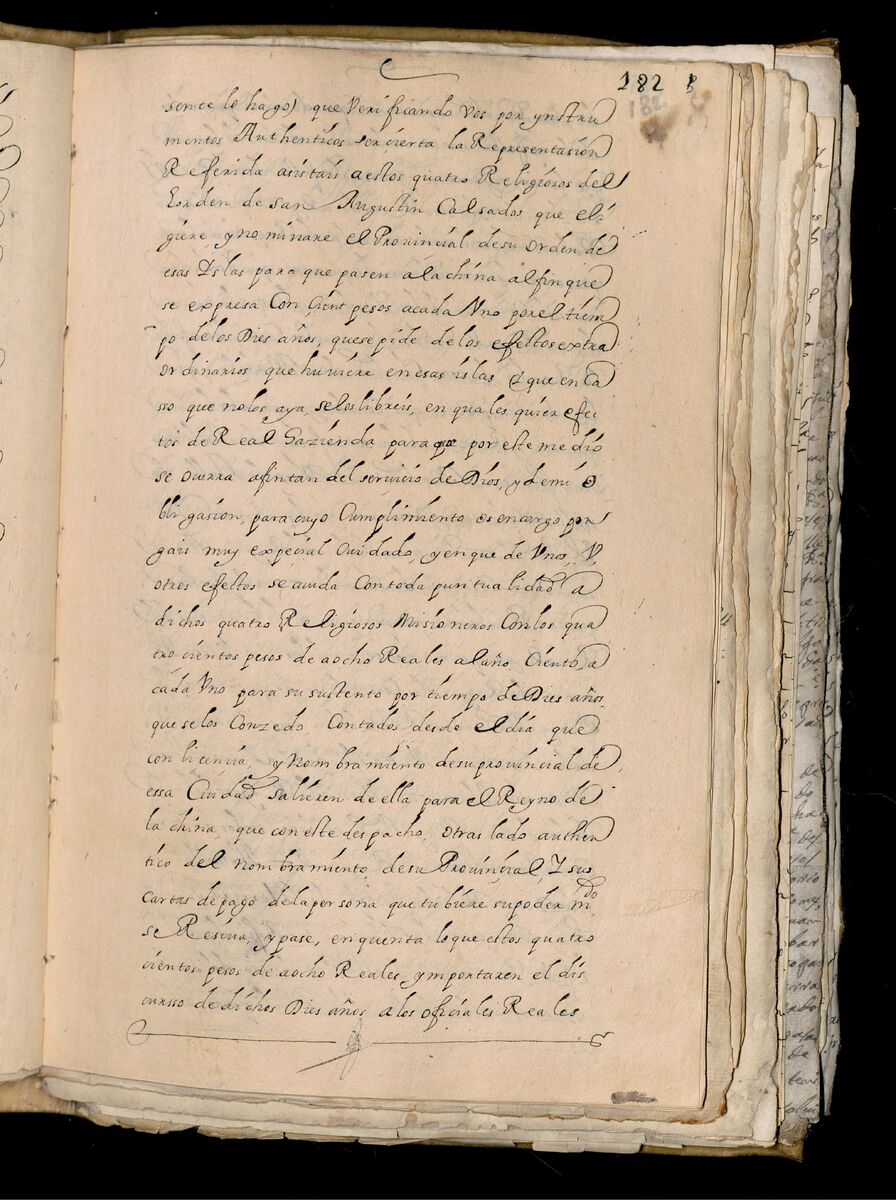 182 B
182
sente lo hago) que Verificando Vos por ynstru
mentos Authenticos ser cierta la Representasion
Referida asistais a estos quatro Religiosos del
Eorden de san Augustin Calsados que eli
giere, y nominare el Provincial de su orden de
esas Yslas para que pasen a la china al fin que
se expresa Con Çient pesos a cada Vno por el tiem
po de los Dies años, que se pide de los efectos extra
ordinarios que huviere en esas islas Y que en ca
sso que no los aya, se los libreis, en quales quier efec
tos de Real Hazienda para que por este medio
se ocurra a fin tan del servicio de Dios, y de mi o
bligasion, para cuyo Cumplimiento os encargo pon
gais muy expecial Cuidado, y en que de Vnos, V
otros efectos se acuda Con toda puntualidad a
dichos quatro Religiosos Misioneros Con los qua
trocientos pesos de a ocho Reales al año, Ciento, a
cada Vno para su sustento por tiempo de Dies años,
que se los Conzedo Contados desde el dia que
con licencia, y Nombramiento de su provincial de
essa Ciudad salieren de ella para el Reyno de
la china, que con este despacho, o traslado authen
tico del nombramiento de su Provincial, Y sus
cartas de pago de la persona que tubiere su poder
se Resiva, y pase, en quenta lo que estos quatro
cientos pesos de a ocho Reales, ymportaren el dis
cursso de dichos Dies años a los oficiales Reales